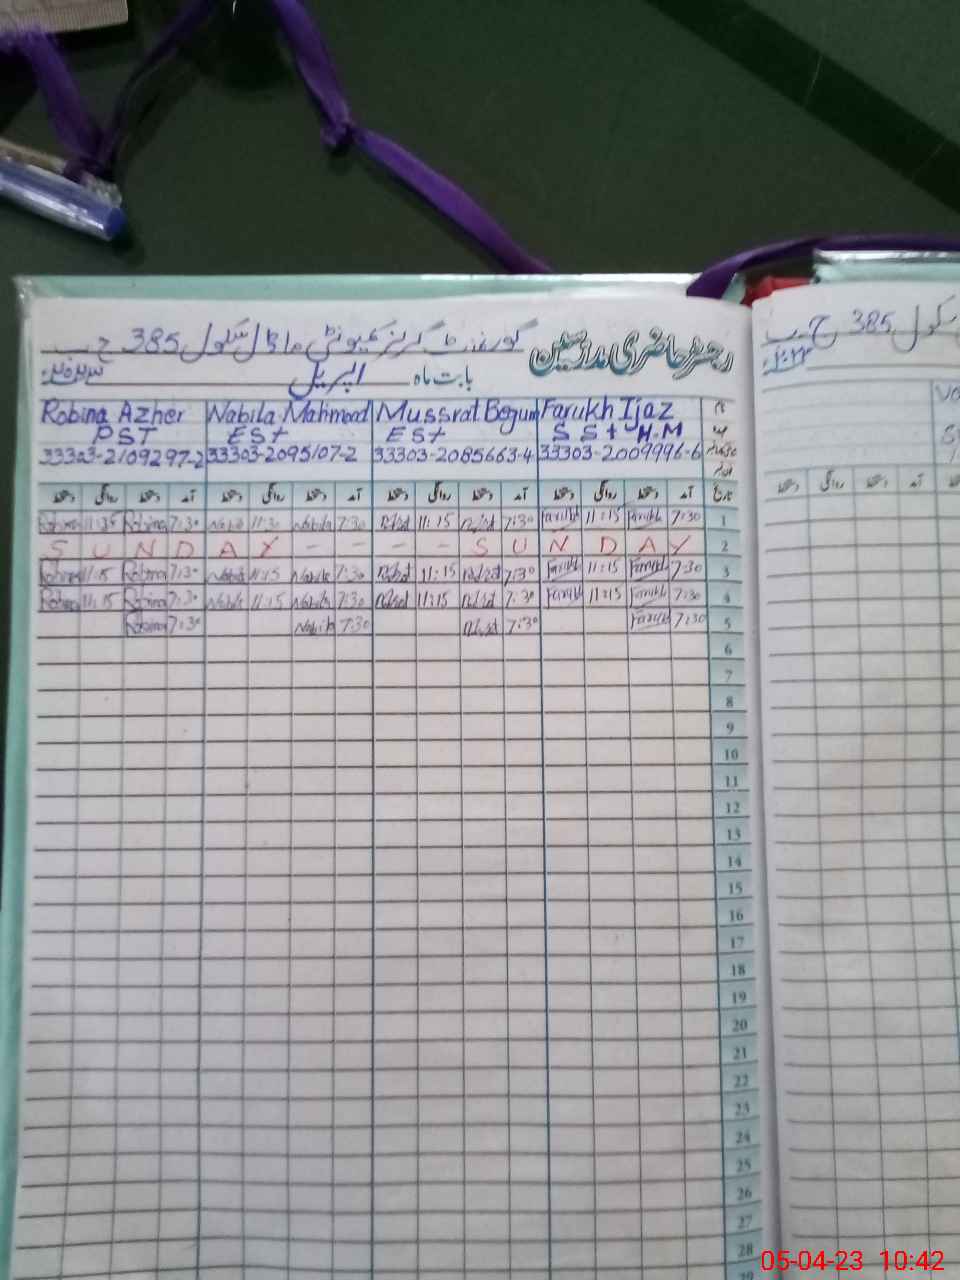 رجسٹر حاضری مدرسین گورنمنٹ گرلز کمیونٹی ماڈل سکول 385 ج ب
بابت ماہ اپریل ۲۰۲۳ء
Robina Azher Nabila Mahmood Mussrat Begum Farukh Ijaz
PST EST EST SST H.M
33303-2109297-2 33303-2095107-2 33303-2085663-4 33303-2009996-6
تاریخ آمد دستخط روانگی دستخط آمد دستخط روانگی دستخط آمد دستخط روانگی دستخط آمد دستخط روانگی دستخط
Robina 11:15 Robina 7:30 Nabila 11:30 Nabila 7:30 11:15 7:30 Farukh 11:15 Farukh 7:30 1
S U N D A Y - - - - S U N D A Y 2
Robina 11:15 Robina 7:30 Nabila 11:15 Nabila 7:30 11:15 7:30 Farukh 11:15 Farukh 7:30 3
Robina 11:15 Robina 7:30 Nabila 11:15 Nabila 7:30 11:15 7:30 Farukh 11:15 Farukh 7:30 4
Robina 7:30 Nabila 7:30 7:30 Farukh 7:30 5
6
7
8
9
10
11
12
13
14
15
16
17
18
19
20
21
22
23
24
25
26
27
28
29
سکول 385 ج ب
دستخط روانگی دستخط آمد
05-04-23 10:42